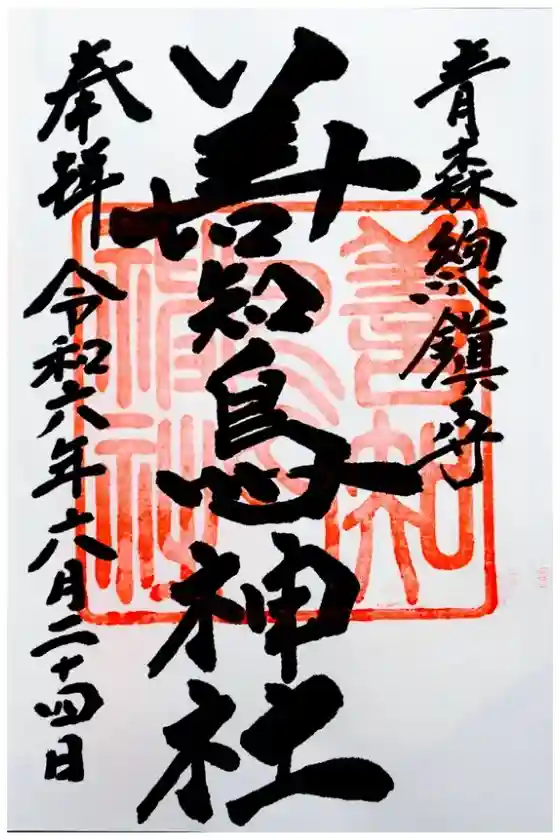 青森總鎮守
善知鳥神社
奉拝 令和六年六月二十四日
善知
鳥
神社